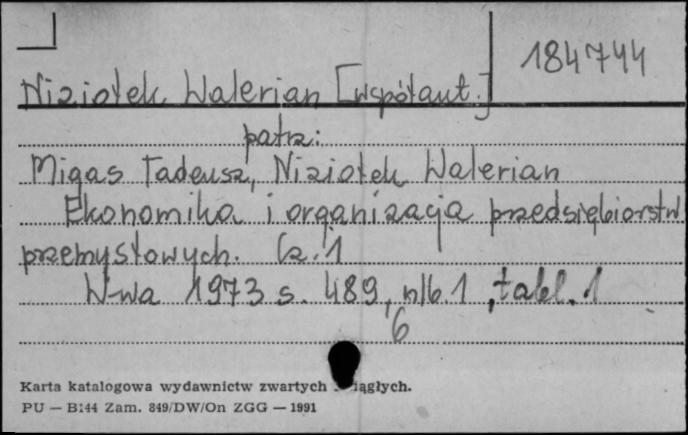 184744
Niziołek Walerian [współaut.]
patrz:
Migas Tadeusz, Niziołek Walerian
Ekonomika i organizacja przedsiębiorstw
przemysłowych. Cz. 1
W-wa 1973 s. 489, nlb. 1, tabl. 1
6
Karta katalogowa wydawnictw zwartych iągłych.
PU — B144 Zam. 849/DW/On ZGG — 1991